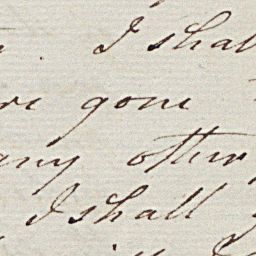 . I shall
gone
any other
I shall